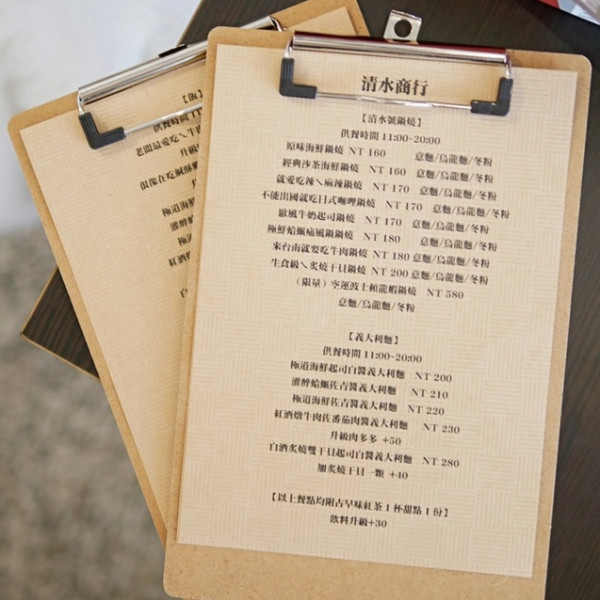 清水商行
【清水號鍋燒】
供餐時間 11:00~20:00
原味海鮮鍋燒 NT 160 意麵/烏龍麵/冬粉
經典沙茶海鮮鍋燒 NT 160 意麵/烏龍麵/冬粉
就愛吃辣\麻辣鍋燒 NT 170 意麵/烏龍麵/冬粉
不能出國就吃日式咖哩鍋燒 NT 170 意麵/烏龍麵/冬粉
歐風牛奶起司鍋燒 NT 170 意麵/烏龍麵/冬粉
極鮮蛤蠣痛風鍋鍋燒 NT 180 意麵/烏龍麵/冬粉
來台南就要吃牛肉鍋燒 NT 180 意麵/烏龍麵/冬粉
生食級\炙燒干貝鍋燒 NT 200 意麵/烏龍麵/冬粉
(限量) 空運波士頓龍蝦鍋燒 NT 580
意麵/烏龍麵/冬粉
【義大利麵】
供餐時間 11:00~20:00
極道海鮮起司白醬義大利麵 NT 200
灑醉蛤蠣佐青醬義大利麵 NT 210
極道海鮮佐青醬義大利麵 NT 220
紅酒燉牛肉佐番茄肉醬義大利麵 NT 230
升級肉多多 +50
白酒炙燒雙干貝起司白醬義大利麵 NT 280
加炙燒干貝一顆 +40
【以上餐點均附古早味紅茶 1 杯甜點 1 份】
飲料升級+30